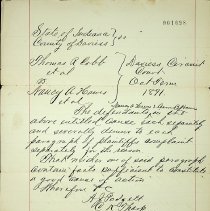 001698
State of Indiana } ss
County of Daviess }
Thomas A Cobb } Daviess Circuit
et al } Court
vs } Oct Term
Nancy A Hawes } 1891.
et al
The defendants in the
above entitled cause each separately
and severally demurs to each
paragraph of plaintiffs complaint
separately for the reason
That neither one of said paragraph
contains facts sufficient to constitute
a good cause of action
Wherefore &c
A J Padgett